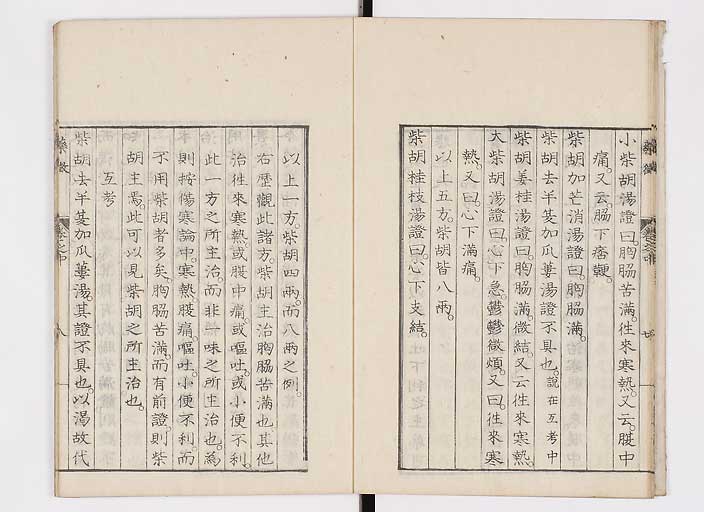 小柴胡湯證曰。胸脇苦滿。徃來寒熱。又云。腹中
痛。又云。脇下痞鞕。
柴胡加芒消湯證曰。胸脇滿。
柴胡去半夏加瓜蔞湯證不具也。說在互考中
柴胡姜桂湯證曰。胸脇滿微結。又云徃來寒熱。
大柴胡湯證曰。心下急。鬱鬱微煩。又曰。徃來寒
熱。又曰。心下滿痛。
以上五方。柴胡皆八兩。
柴胡桂枝湯證曰。心下支結。
藥徵
卷之中
八
以上一方。柴胡四兩。而八兩之例。
右歷觀此諸方。柴胡主治胸脇苦滿也。其他
治徃來寒熱。或腹中痛。或嘔吐。或小便不利。
此一方之所主治。而非一味之所主治也。為
則按傷寒論中。寒熱腹痛嘔吐。小便不利。而
不用柴胡者多矣。胸脇苦滿。而有前證。則柴
胡主焉。此可以見柴胡之所主治也。
互考
柴胡去半夏加瓜蔞湯。其證不具也。以湯故代